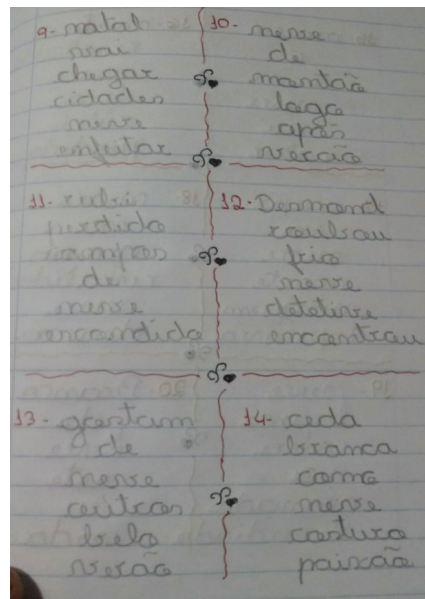 9- natal
vai
chegar
cidades
neve
enfeitar
10- neve
de
montão
logo
após
verão
11- rubi
perdido
campos
de
neve
encondido
12- Desmond
roubou
frio
neve
detetive
encontrou
13- gostam
de
neve
outros
belo
verão
14- ceda
branca
como
neve
costura
paixão